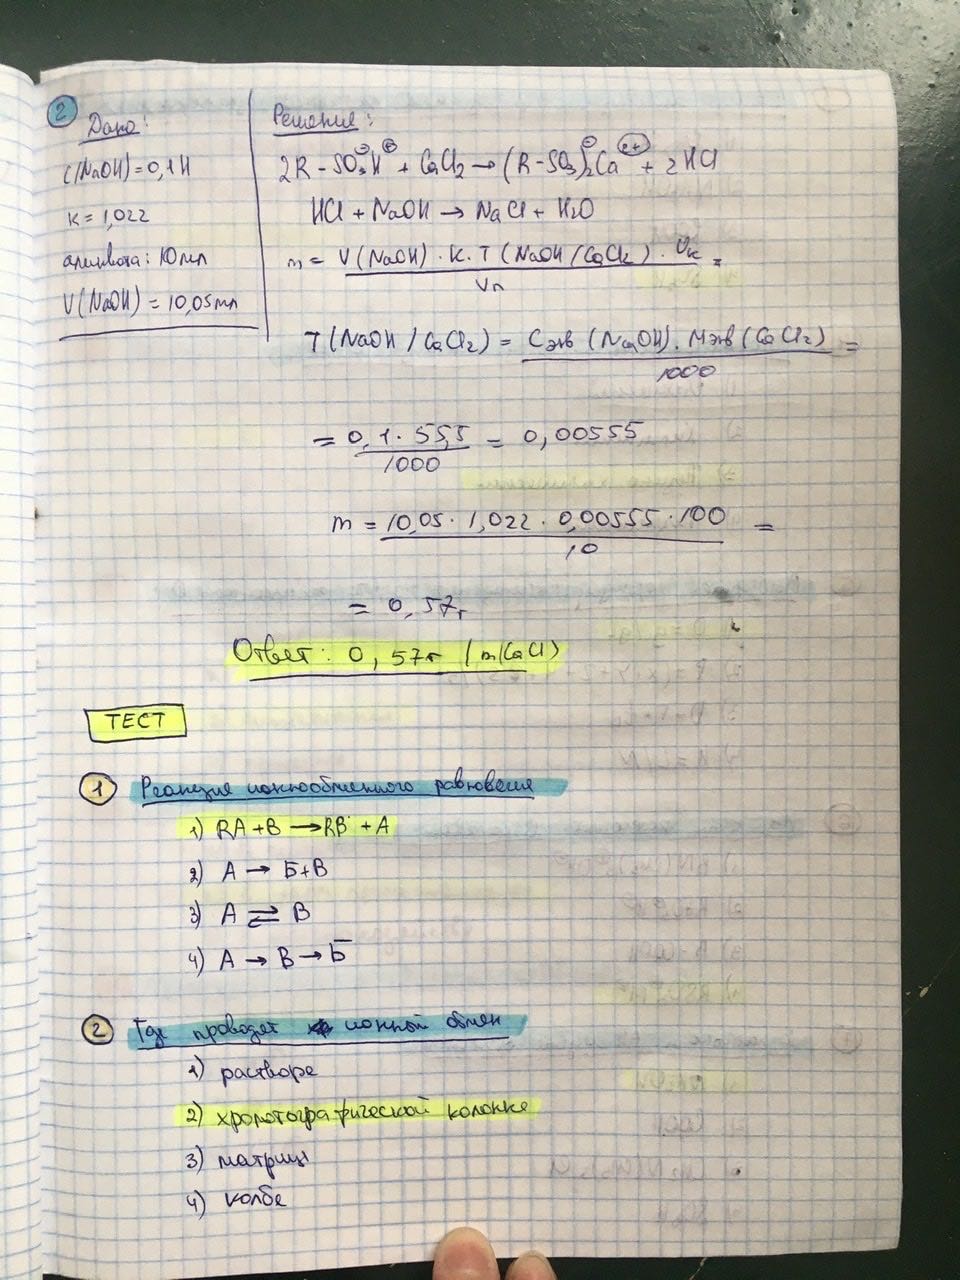 2
Дано:
C(NaOH)=0,1Н
K=1,022
аликвота: 10мл
V(NaOH)=10,05мл
Решение:
2R-SO₃⁻H⁺ + CaCl₂ → (R-SO₃)₂⁻Ca²⁺ + 2HCl
HCl + NaOH → NaCl + H₂O
m = V(NaOH) · K · T(NaOH/CaCl₂) · Vк =
Vп
T(NaOH/CaCl₂) = Cэкв(NaOH) · Mэкв(CaCl₂) =
1000
= 0,1 · 55,5 = 0,00555
1000
m = 10,05 · 1,022 · 0,00555 · 100 =
10
= 0,57г
Ответ: 0,57г (m(CaCl)
ТЕСТ
1 Реакция ионнообменного равновесия
1) RA+B → RB + A
2) A → Б+В
3) A ⇌ B
4) A → B → Б
2 Где проводят ионной обмен
1) растворе
2) хроматографической колонке
3) матрицы
4) колбе